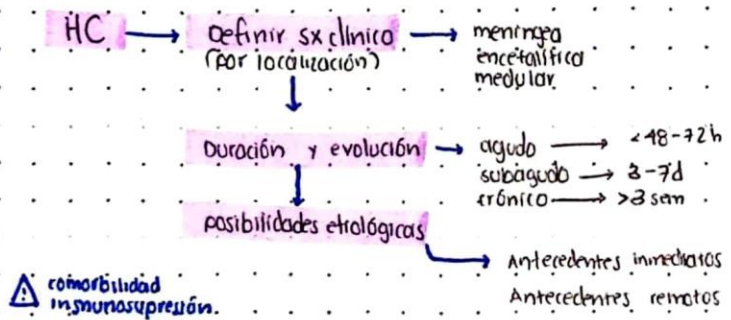 HC → Definir sx clínico → meníngea
(por localización) encefalítica
medular
Duración y evolución → agudo → <48-72h
subagudo → 3-7d
crónico → >3 sem
posibilidades etiológicas
→ Antecedentes inmediatos
Antecedentes remotos
⚠ comorbilidad
inmunosupresión.